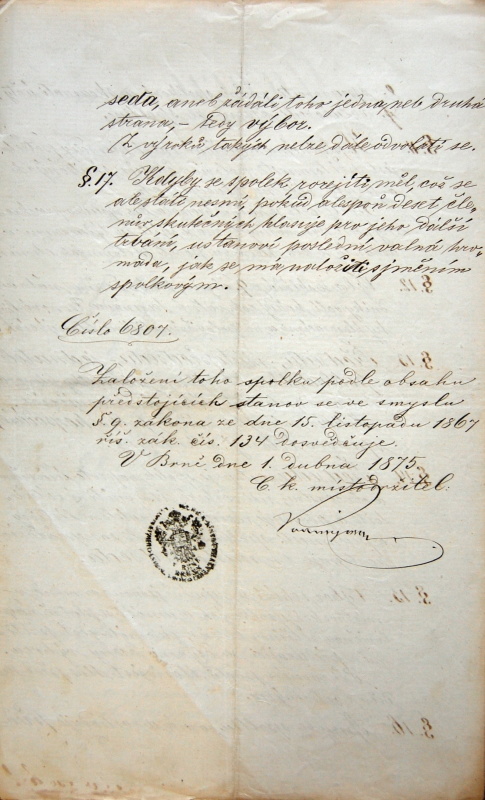 seda, aneb žádá-li toho jedna neb druhá
strana, – tedy výbor.
(Z výroků takých nelze dále odvolati se.
§. 17. Kdyby se spolek rozejíti měl, což se
ale státi nesmí, pokud alespoň deset čle-
nův skutečných hlasuje pro jeho další
trvání, ustanoví poslední valná hro-
mada, jak se má naložiti s jměním
spolkovým.
Číslo 6807.
Založení toho spolku podle obsahu
předstojících stanov se ve smyslu
§. 9. zákona ze dne 15. listopadu 1867
říš. zák. čís. 134 dosvědčuje.
V Brně dne 1. dubna 1875.
C. k. místodržitel: